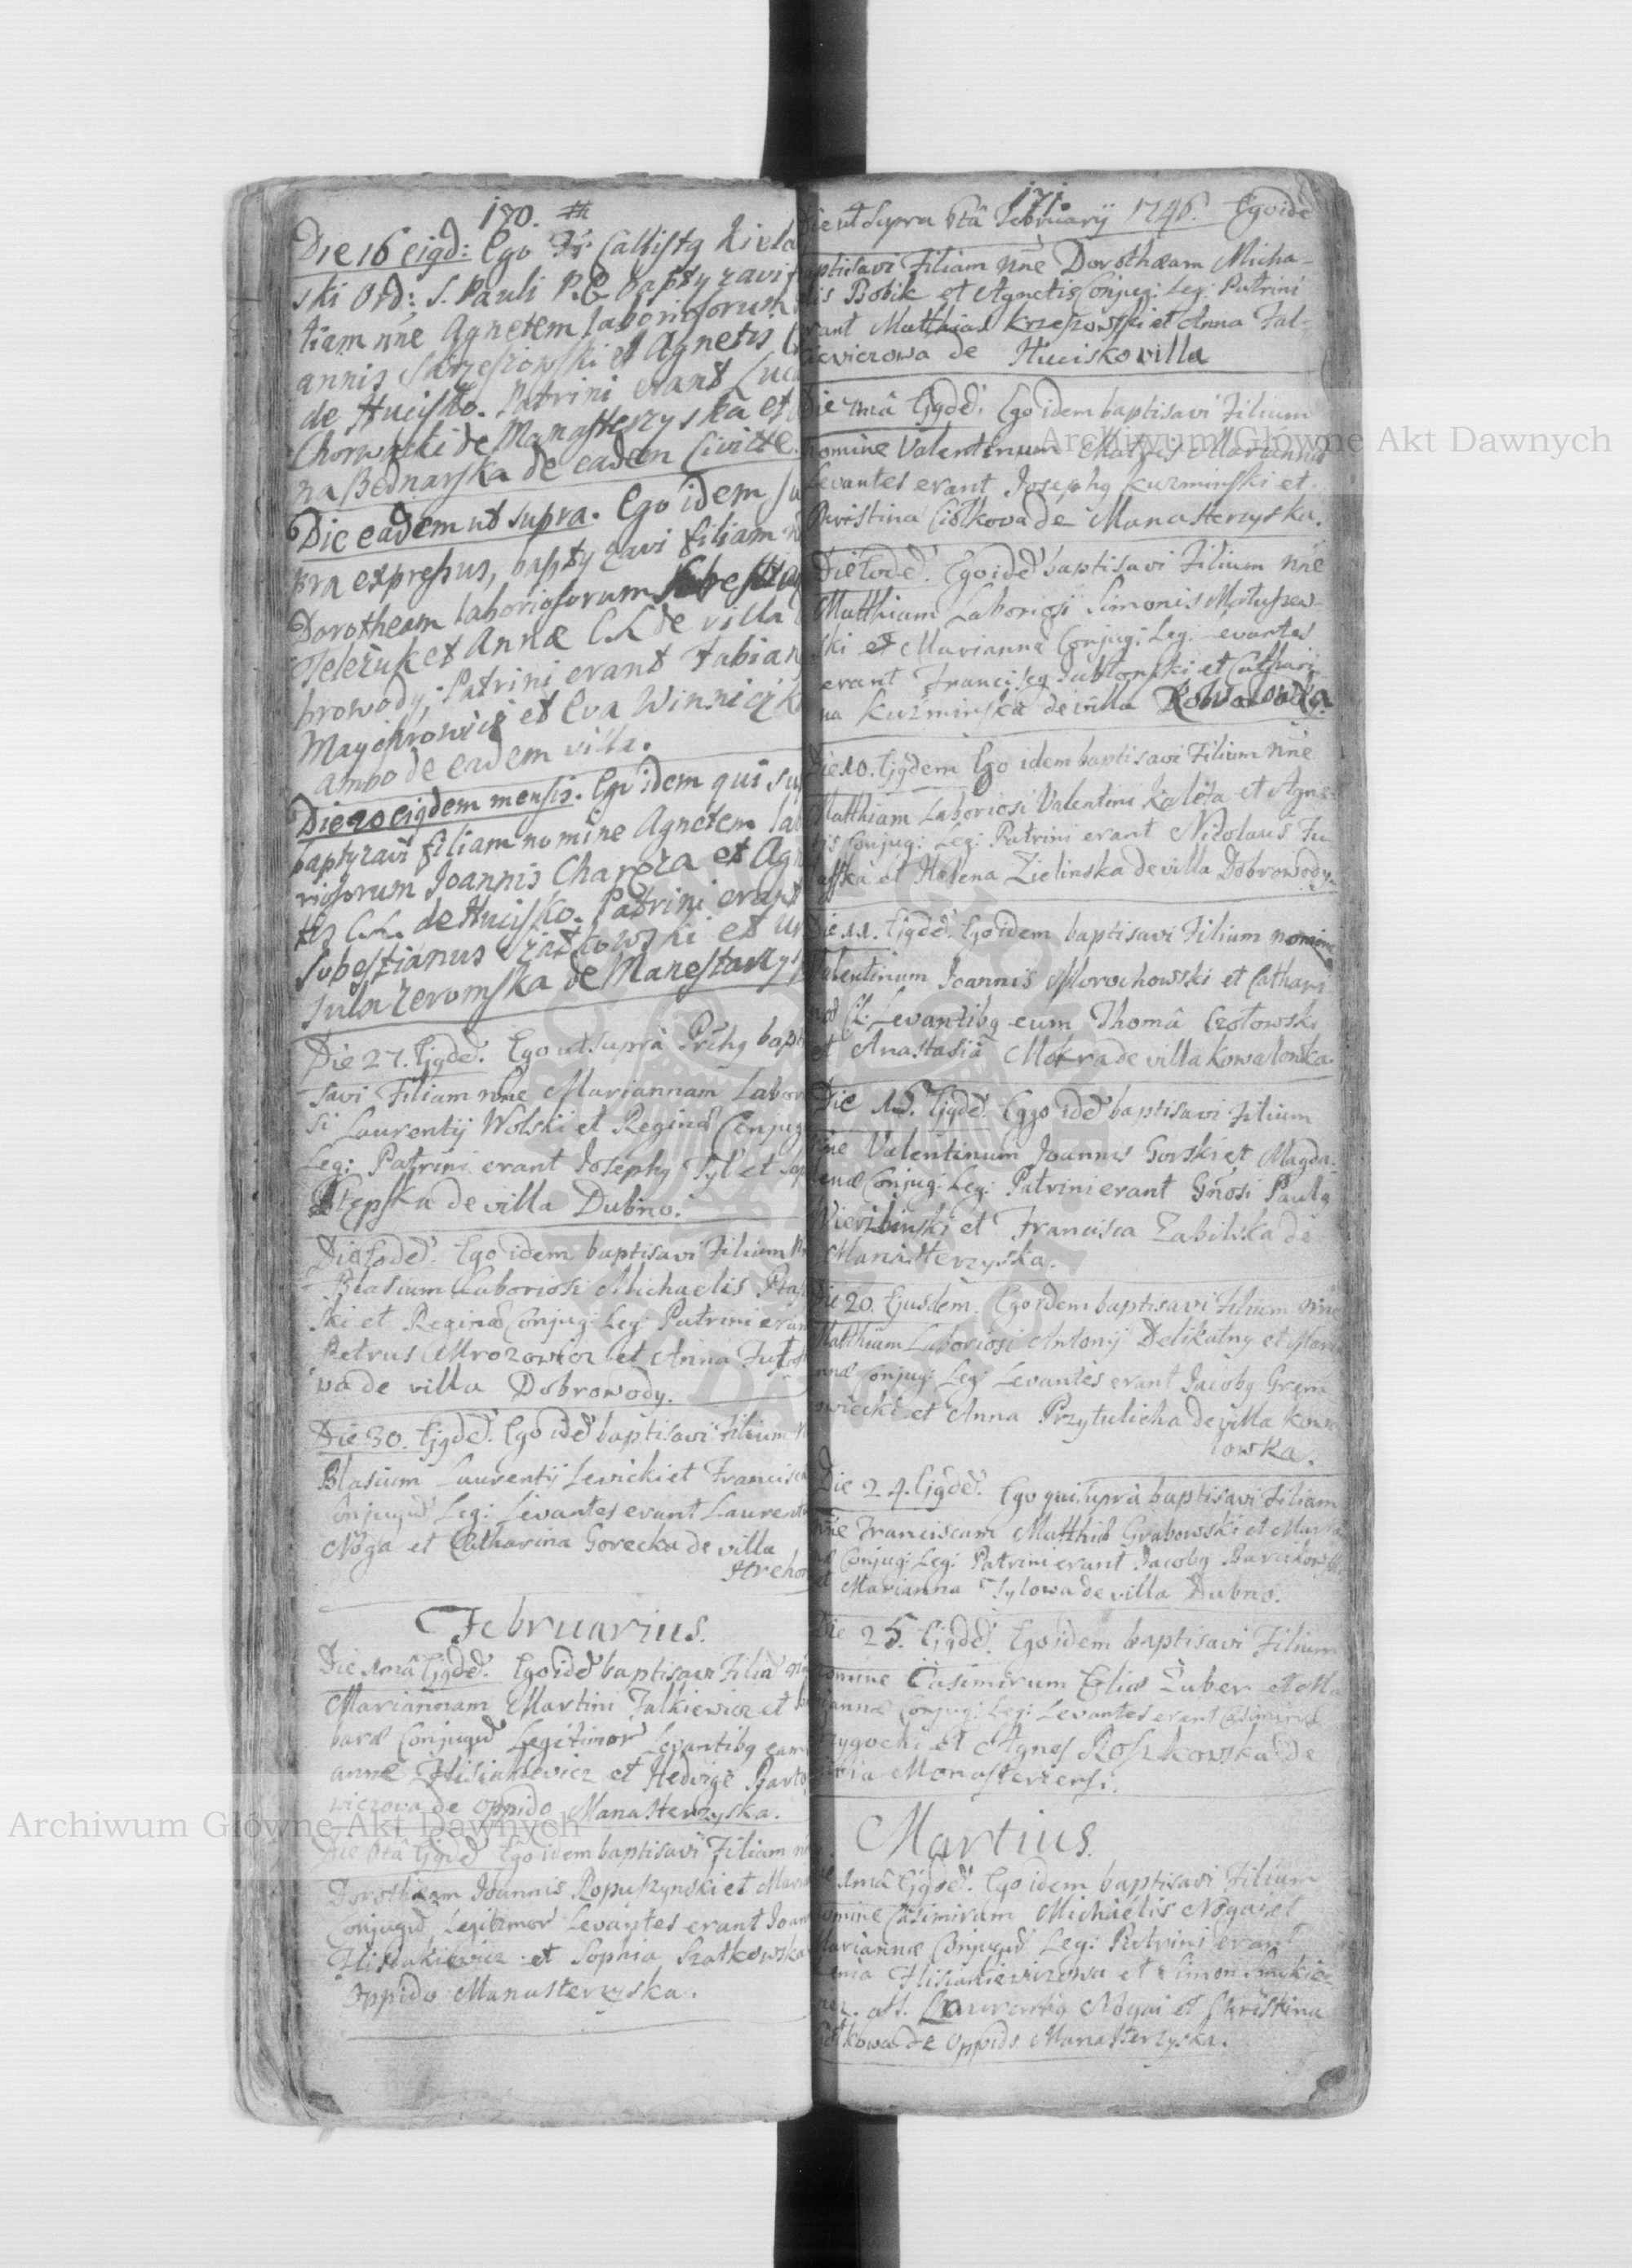 170.
Die 16 eigd: Ego Fr Callistg Kiela
ski Ord: S. Pauli P. E baptyzavi f
liam nne Agnetem laboriosorum
annis Skrzeszowski et Agnetis C
de Hucisko. Patrini erant Luc
Chorwacki de Manasterzyska et
na Bednarska de eadem Civitte.
Die eadem ut supra. Ego idem su
pra expressus, baptyzavi filiam n
Dorotheam laboriosorum
Teleżuk et Annæ C. L de villa
browody; Patrini erant Fabian
Maychrowicz et Eva Winnicka
ambo de eadem villa.
Die 20 eigdem mensis. Ego idem qui su
baptyzavi filiam nomine Agnetem lab
riosorum Joannis Charoza et Agn
tis C. L. de Hucisko. Patrini erant
Sobestianus Szatkowski et Ur
sula Zeromska de Manestarzys
Die 27. Ejgded. Ego ut supra Prchg bapt
savi Filiam nne Mariannam Labor
si Laurentij Wolski et Reginæ Conjug
Leg: Patrini erant Josephg Tyl et
Stępska de villa Dubno.
Die Eoded. Ego idem baptisavi Filium
Blasium Laboriosi Michaelis Ptas
ski et Reginæ Conjug: Leg: Patrini eran
Petrus Mrozowicz et Anna Jut
wa de villa Dobrowody.
Die 30. Ejgded. Ego ided baptisavi Filium
Blasium Laurentij Lewicki et Francisca
Conjugud Leg: Levantes erant Laurent
Noga et Catharina Gorecka de villa
Hrehor
Februarius.
Die 1mâ Ejgded. Ego ided baptisavi Filia
Mariannam Martini Falkiewicz et
baræ Conjugud Legitimor Levantibg eam
anne Hliniakiewicz et Hedvige Barto
wiczowa de oppido Manasterzyska.
Die 6tâ Ejgded Ego idem baptisavi Filiam n
Dorotheam Joannis Ropuszynski et Maria
Conjugud Legitimor Levantes erant Joan
et Sophia Szatkowska
Oppido Manasterzyska.
171.
Die ut Supra 6tâ Februarij 1746. Ego ide
baptisavi Filiam nne Dorothæam Micha-
lis Bobik et Agnetis Conjug: Leg: Patrini
erant Matthias Krzeszowski et Anna Fal-
kieviczowa de Hucisko villa
Die 7mâ Ejgded. Ego idem baptisavi Filium
nomine Valentinum Matris Mariannæ
Levantes erant Josephg Kuzminski et
Christina Ciolkova de Manasterzyska.
Die Eoded. Ego ided baptisavi Filium nne
Matthiam Laboriosi Simonis Matuszew-
ski et Marianna Conjug: Leg. Levantes
erant Franciscg Jablonski et Cathari-
na Kuzminska de villa Kowalowka.
Die 10. Ejgdem Ego idem baptisavi Filium nne
Matthiam Laboriosi Valentini Kaleta et Agne-
tis Conjug: Leg: Patrini erant Nicolaus Ju
et Helena Zielinska de villa Dobrowody.
Die 11. Ejgded. Ego idem baptisavi Filium nomine
Valentinum Joannis Morochowski et Cathari
næ Cl: Levantibg eum Thomâ Czołowski
et Anastasiâ Mokra de villa Kowalowka.
Die 15. Ejgded. Ego ided baptisavi Filium
nne Valentinum Joannis Gorski et Magda-
lenæ Conjug: Leg: Patrini erant Gnosi Paulg
Wierzbinski et Francisca Zabilska de
Manasterzyska.
Die 20. Ejusdem. Ego idem baptisavi Filium nne
Matthiam Laboriosi Antonij Delikatny et Mari
annæ Conjug: Leg: Levantes erant Jacobg Grem
et Anna Przytulicha de villa Kowa
lowka.
Die 24. Ejgded. Ego qui supra baptisavi Filiam
nne Franciscam Matthiæ Grabowski et Maria
næ Conjug: Leg: Patrini erant Jacobg Barcikowski
et Marianna Tylowa de villa Dubno.
Die 25. Ejgded. Ego idem baptisavi Filium
nomine Casimirum Eliæ Zuber et Ma
riannæ Conjug: Leg: Levantes erant Casimirus
et Agnes Roszkowska de
Monasterzensi.
Martius.
Die 1mâ Ejgded. Ego idem baptisavi Filium
nomine Casimirum Michaelis Nogai et
Mariannæ Conjugud Leg: Patrini erant
Hliniakiewiczowa et Simon
Laurentig Nogai et Christina
Ciolkowa de oppido Manasterzyska.
Archiwum Główne Akt Dawnych
Archiwum Główne Akt Dawnych